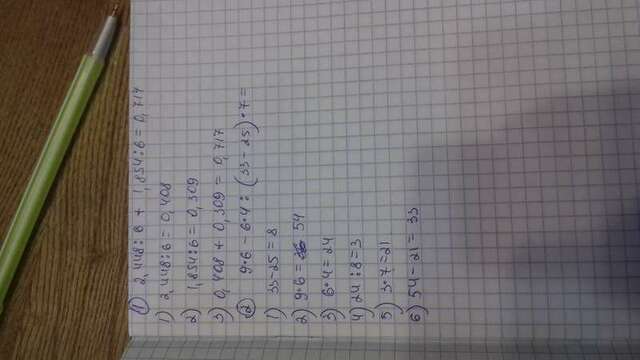 ① 2,448:6 + 1,854:6 = 0,717
1) 2,448:6 = 0,408
2) 1,854:6 = 0,309
3) 0,408 + 0,309 = 0,717
② 9•6 - 6•4 : (33-25)•7=
1) 33-25=8
2) 9•6 = 54
3) 6•4=24
4) 24:8=3
5) 3•7=21
6) 54-21= 33